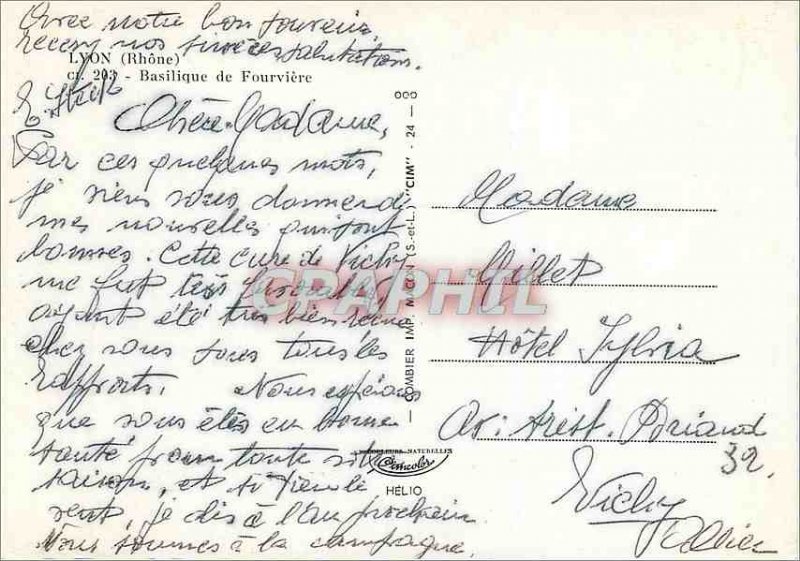 Avec notre bon souvenir,
recevez nos sincères salutations.
LYON (Rhône)
cr. 203 - Basilique de Fourvière
Chère Madame,
Par ces quelques mots,
je viens vous donner de
mes nouvelles qui sont
bonnes. Cette cure de Vichy
me fut très favorable,
ayant été très bien reçue
chez vous sous tous les
rapports. Nous espérons
que vous êtes en bonne
santé pour toute votre
saison, et si Dieu le
veut, je dis à l'an prochain
Nous sommes à la campagne.
COMBIER IMP. MACON (S.-et-L.) "CIM" - 24 - 000
CPAPHIL
COULEURS NATURELLES
Cimcolor
HÉLIO
Madame
Millet
Hôtel Sylvia
Av: Arist. Briand
32.
Vichy
Allier